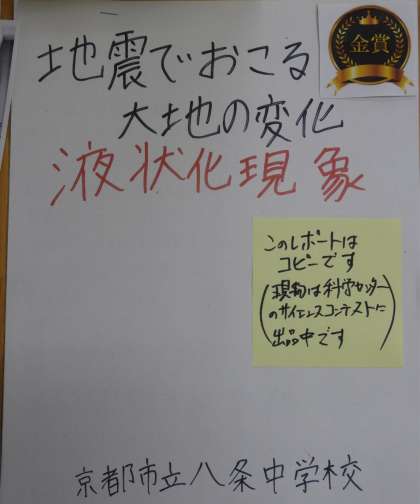 金賞
地震でおこる
大地の変化
液状化現象
このレポートは
コピーです
(現物は科学センター
のサイエンスコンテストに
出品中です)
京都市立八条中学校